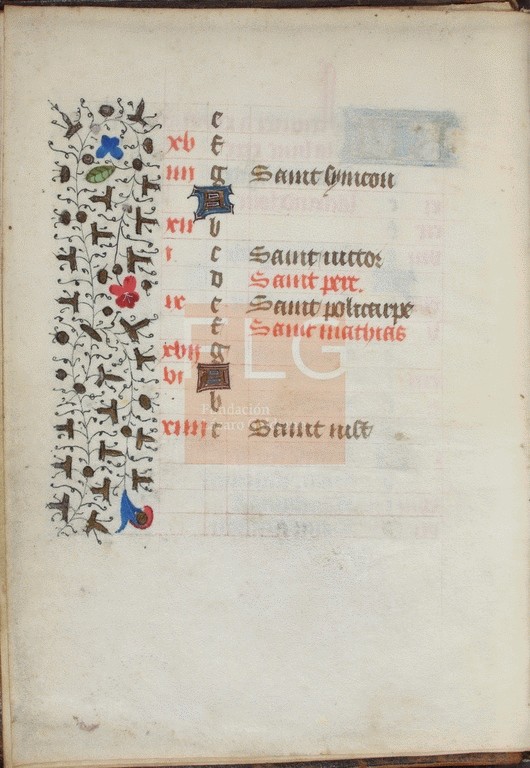 e
xv f
iiii g Saint symeon
A
xii b
i c Saint uictor
d Saint pere.
ix e Saint policarpe
f Saint mathias
xvii g
vi A
b
xiiii c Saint
FLG
Fundación